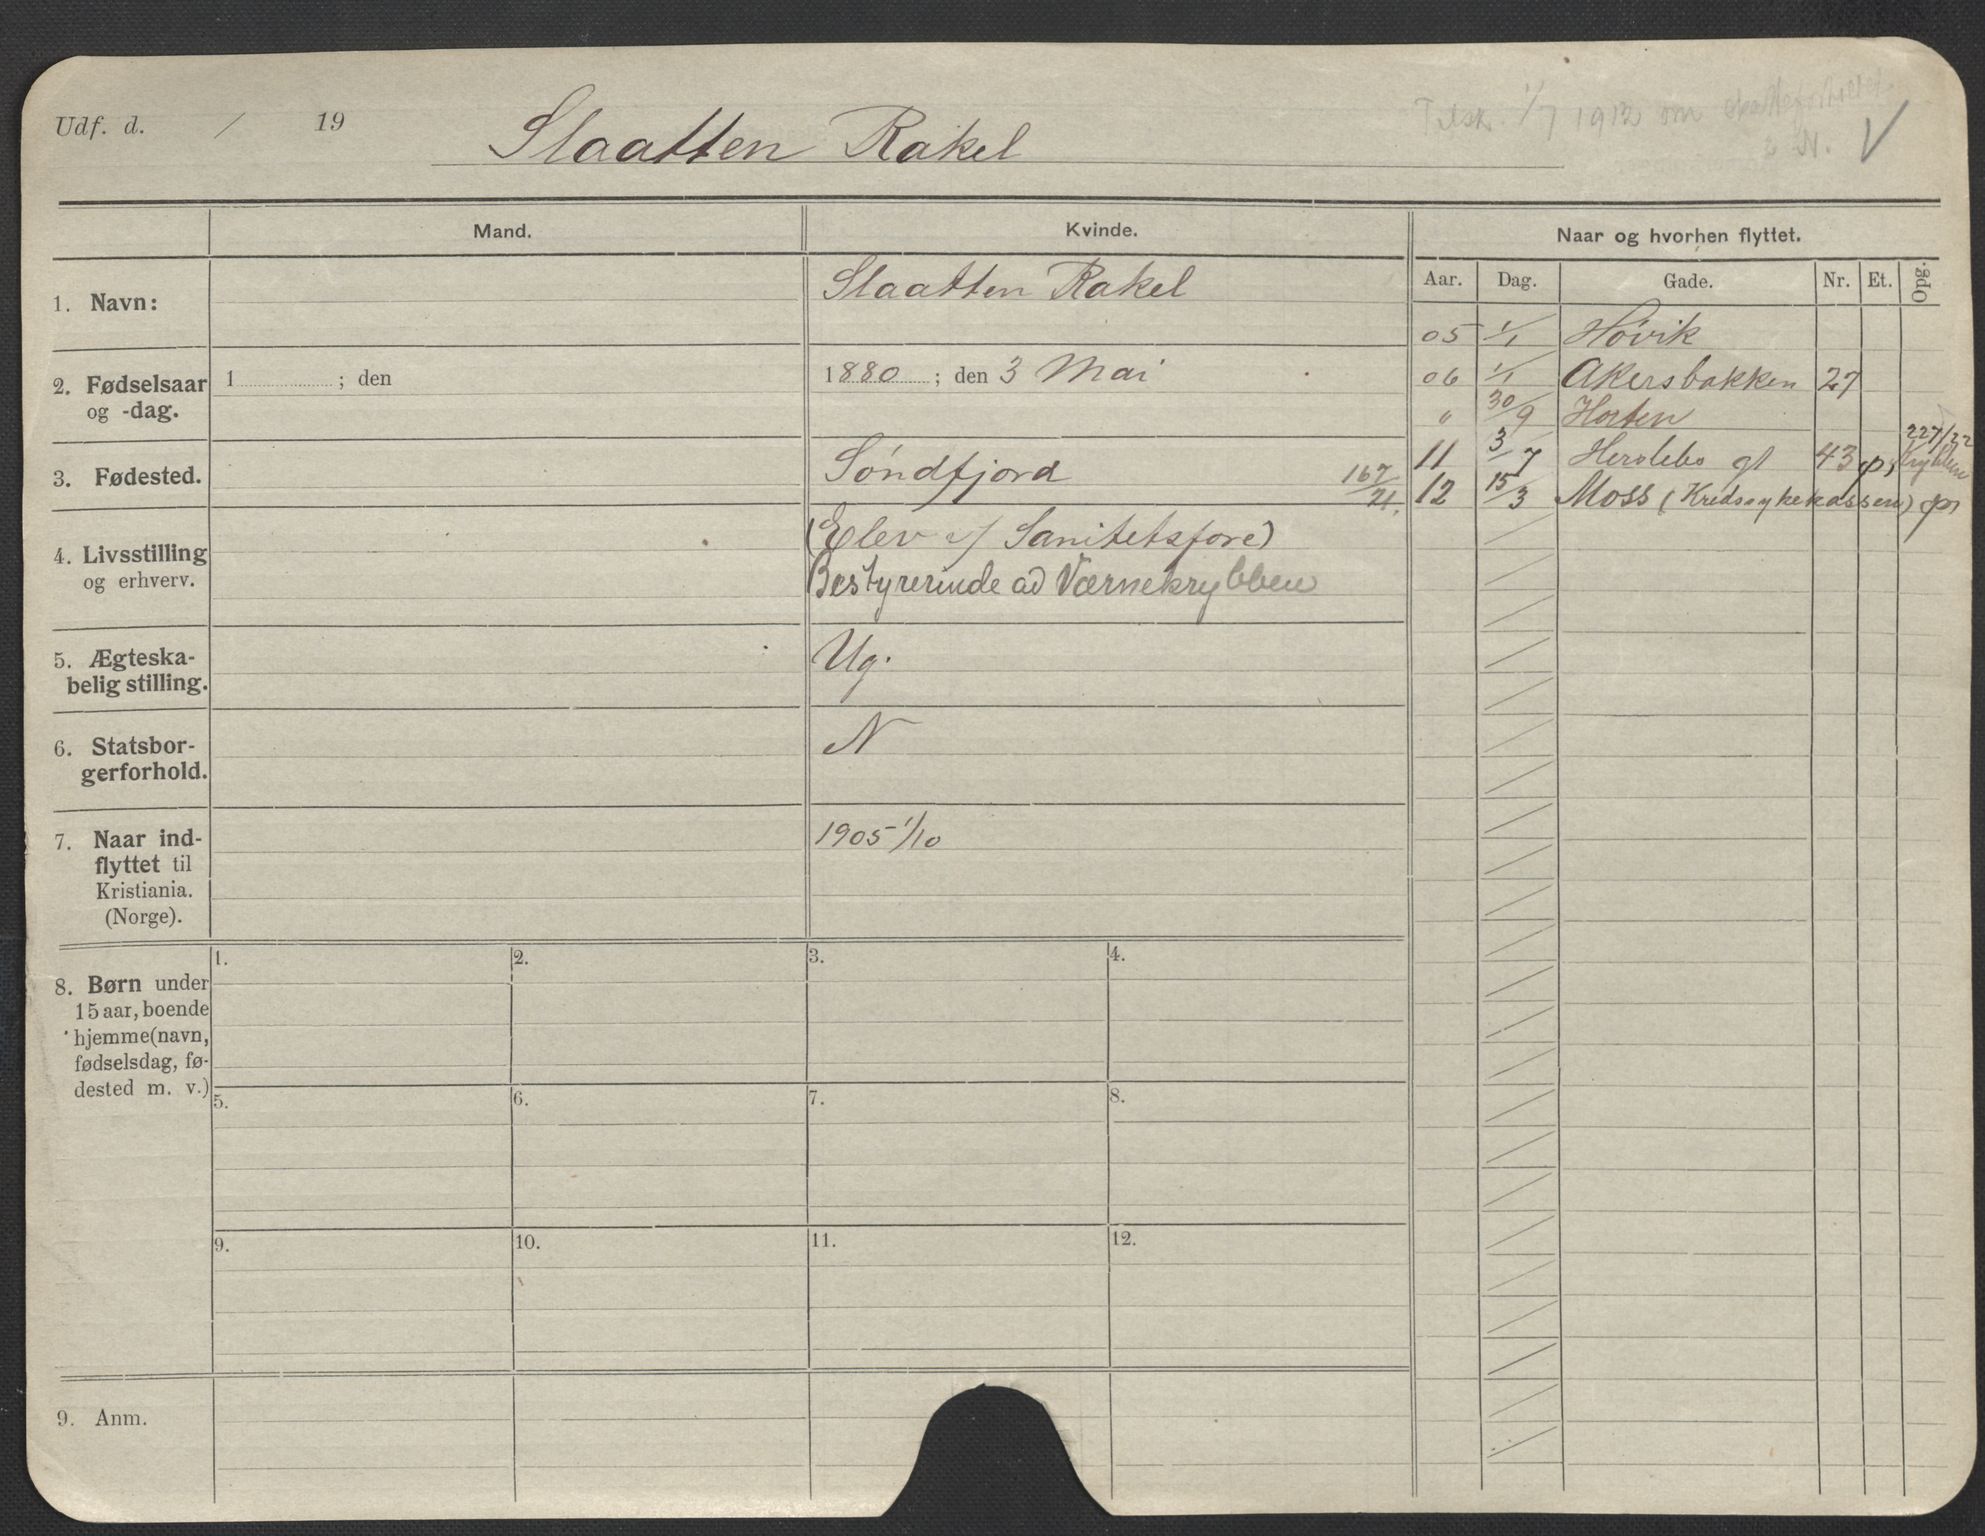 Udf. d. / 19
Slaatten Rakel
Tilsk. 1/7 1912 om
N. V
Mand.
Kvinde.
Naar og hvorhen flyttet.
Aar. Dag. Gade. Nr. Et. Opg.
1. Navn:
Slaatten Rakel
05 1/1 Høvik
2. Fødselsaar
og -dag.
1 ; den
1880 ; den 3 Mai
06 1/1 Akersbakken 27
" 30/9 Horten
3. Fødested.
Søndfjord
167/21.
11 3/7 Herslebs gt 43 227/22 Krybben
12 15/3 Moss (Kredssykekassen)
4. Livsstilling
og erhverv.
(Elev v/ Sanitetsfore)
Bestyrerinde ad Værnekrybben
5. Ægteska-
belig stilling.
Ug.
6. Statsbor-
gerforhold.
N
7. Naar ind-
flyttet til
Kristiania.
(Norge).
1905 1/10
8. Børn under
15 aar, boende
hjemme (navn,
fødselsdag, fø-
dested m. v.)
1. 2. 3. 4.
5. 6. 7. 8.
9. 10. 11. 12.
9. Anm.